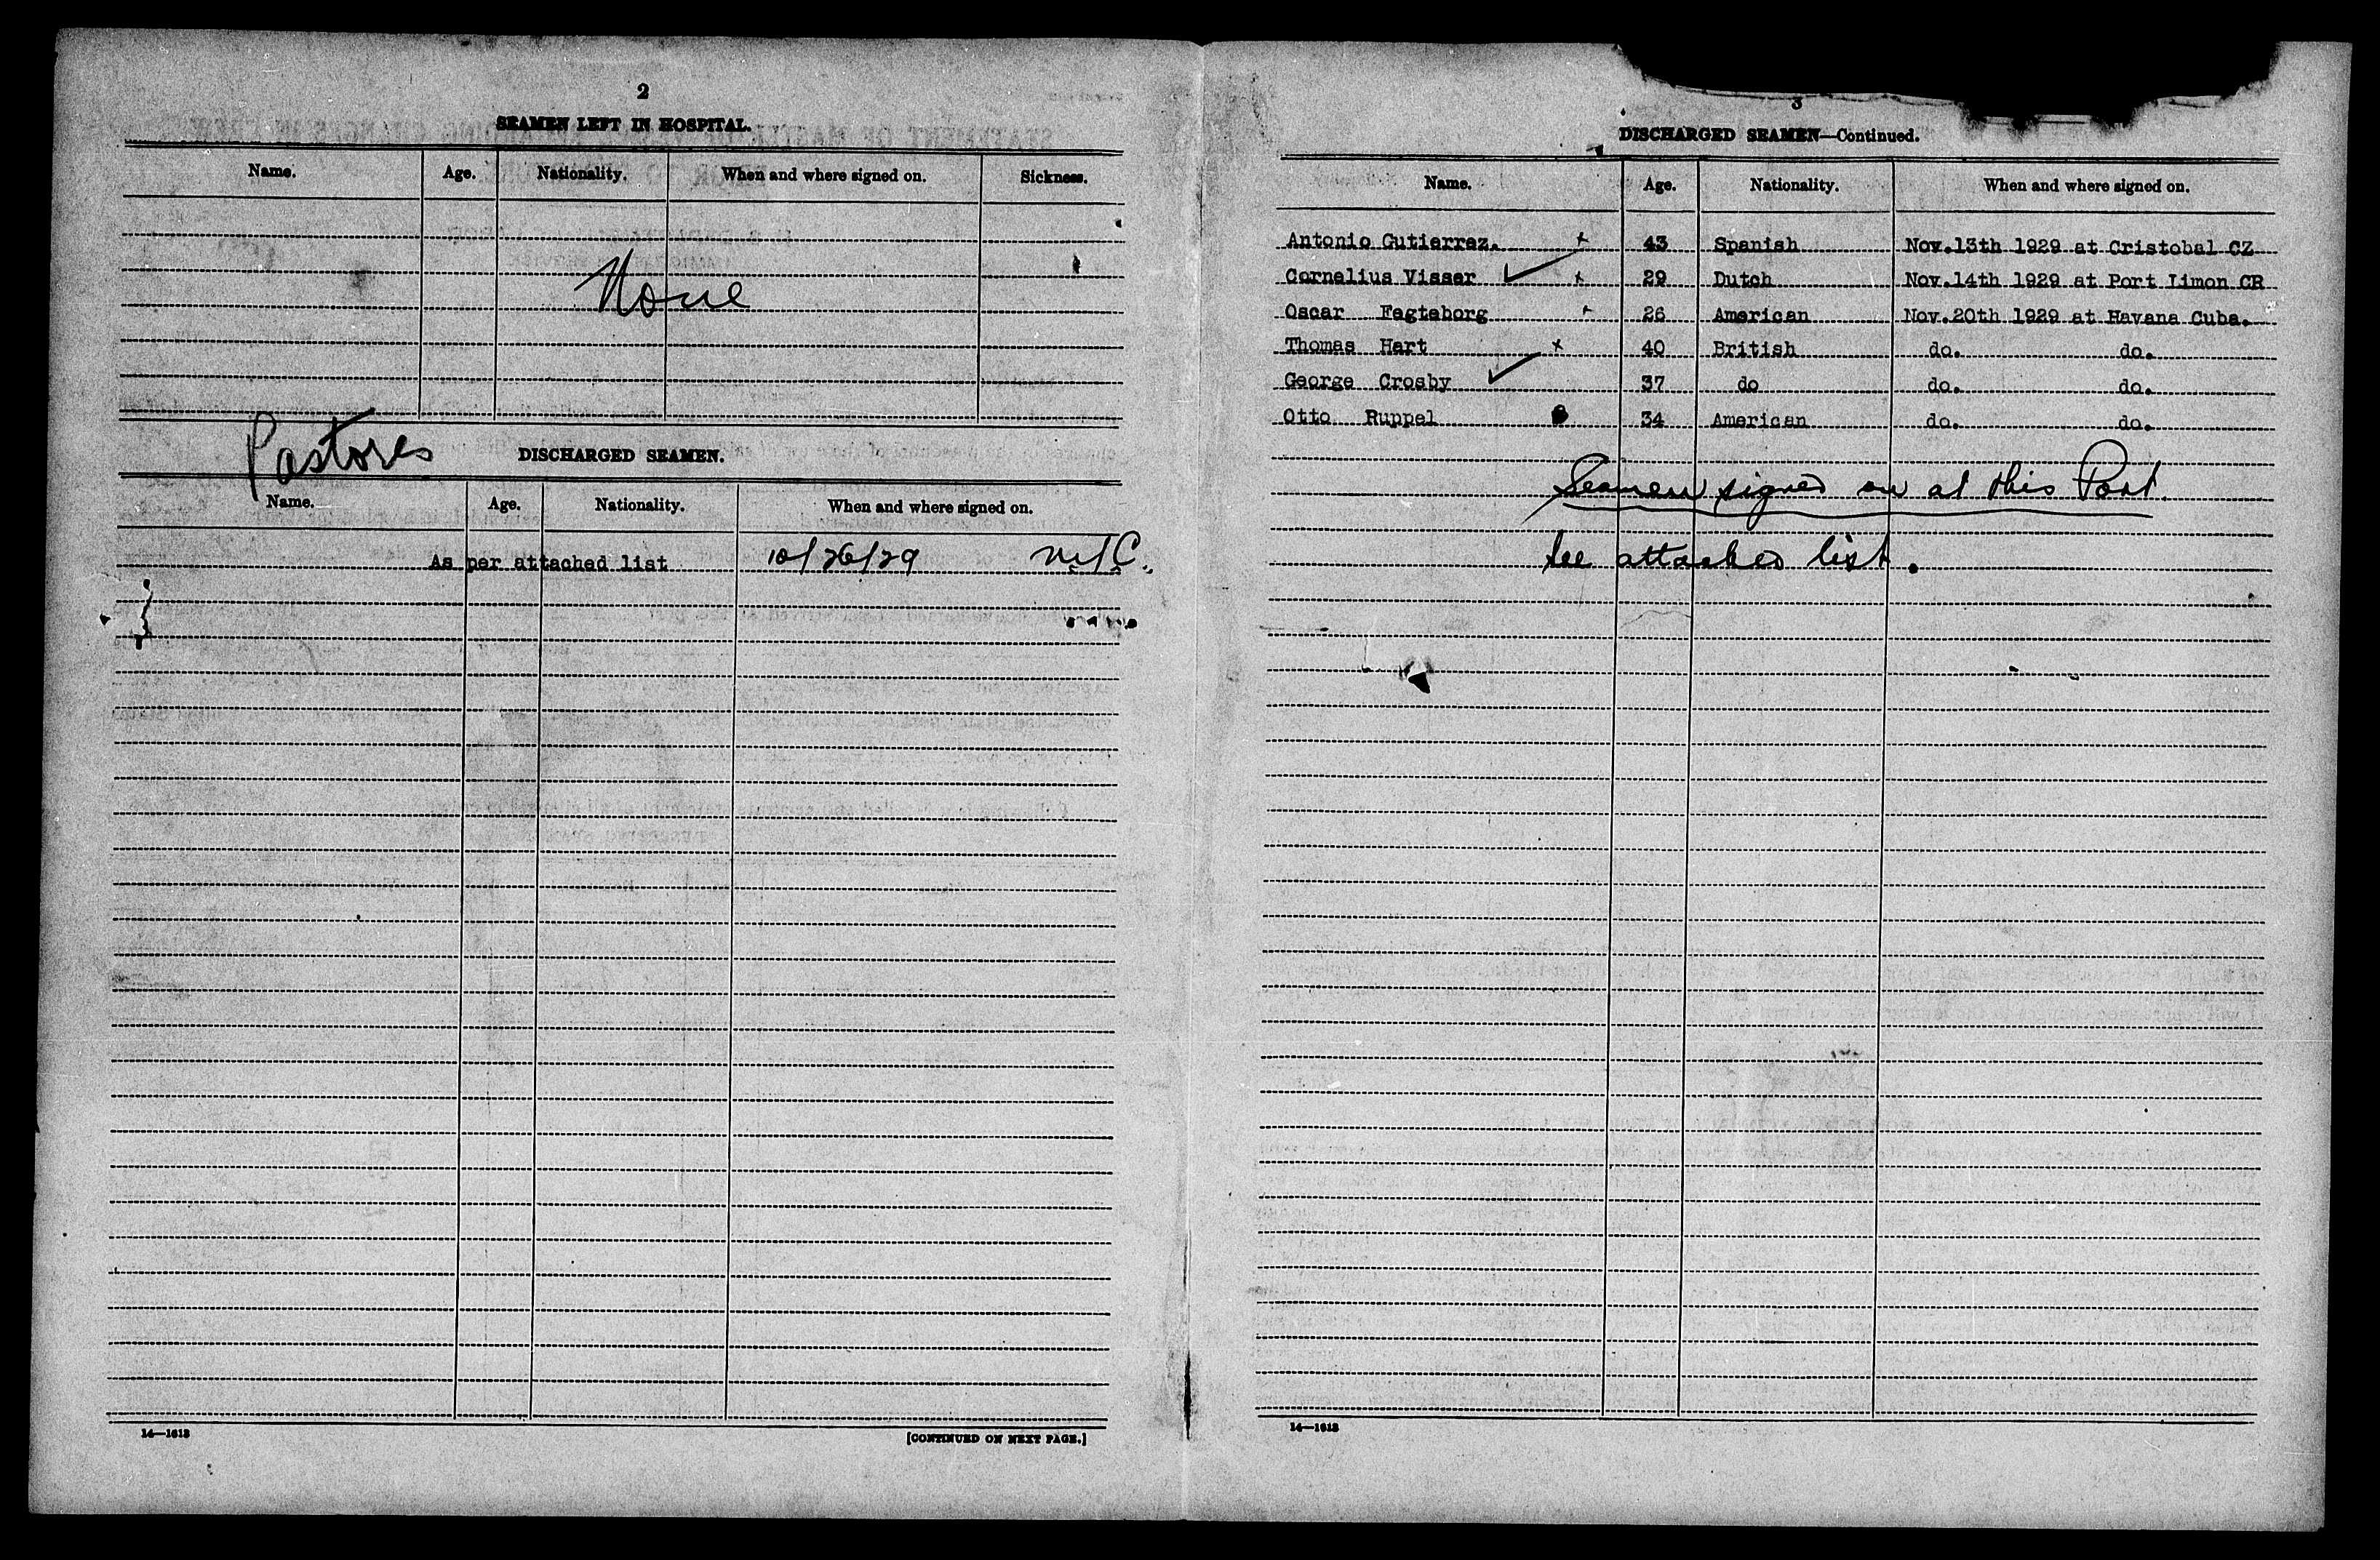 2
SEAMEN LEFT IN HOSPITAL.
Name. Age. Nationality. When and where signed on. Sickness.
None
Pastores
DISCHARGED SEAMEN.
Name. Age. Nationality. When and where signed on.
As per attached list 10/26/29
14—1613
[CONTINUED ON NEXT PAGE.]
3
DISCHARGED SEAMEN—Continued.
Name. Age. Nationality. When and where signed on.
Antonio Gutierrez. x 43 Spanish Nov.13th 1929 at Cristobal CZ
Cornelius Visser ✓ x 29 Dutch Nov.14th 1929 at Port Limon CR
Oscar Fagteborg x 26 American Nov.20th 1929 at Havana Cuba.
Thomas Hart x 40 British do. do.
George Crosby ✓ 37 do do. do.
Otto Ruppel 34 American do. do.
Seamen signed on at this Port.
See attached list.
14—1613